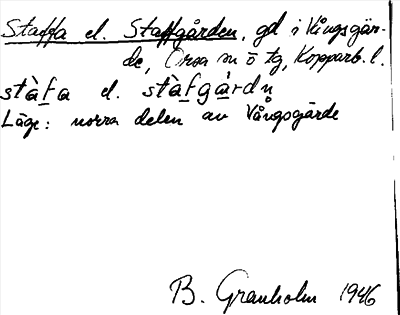 Staffa el. Staffgården, gd i Vångsgär-
de, Orsa sn o tg, Kopparb. l.
stàfa el. stàfgárdn̥
Läge: norra delen av Vångsgärde
B. Granholm 1946